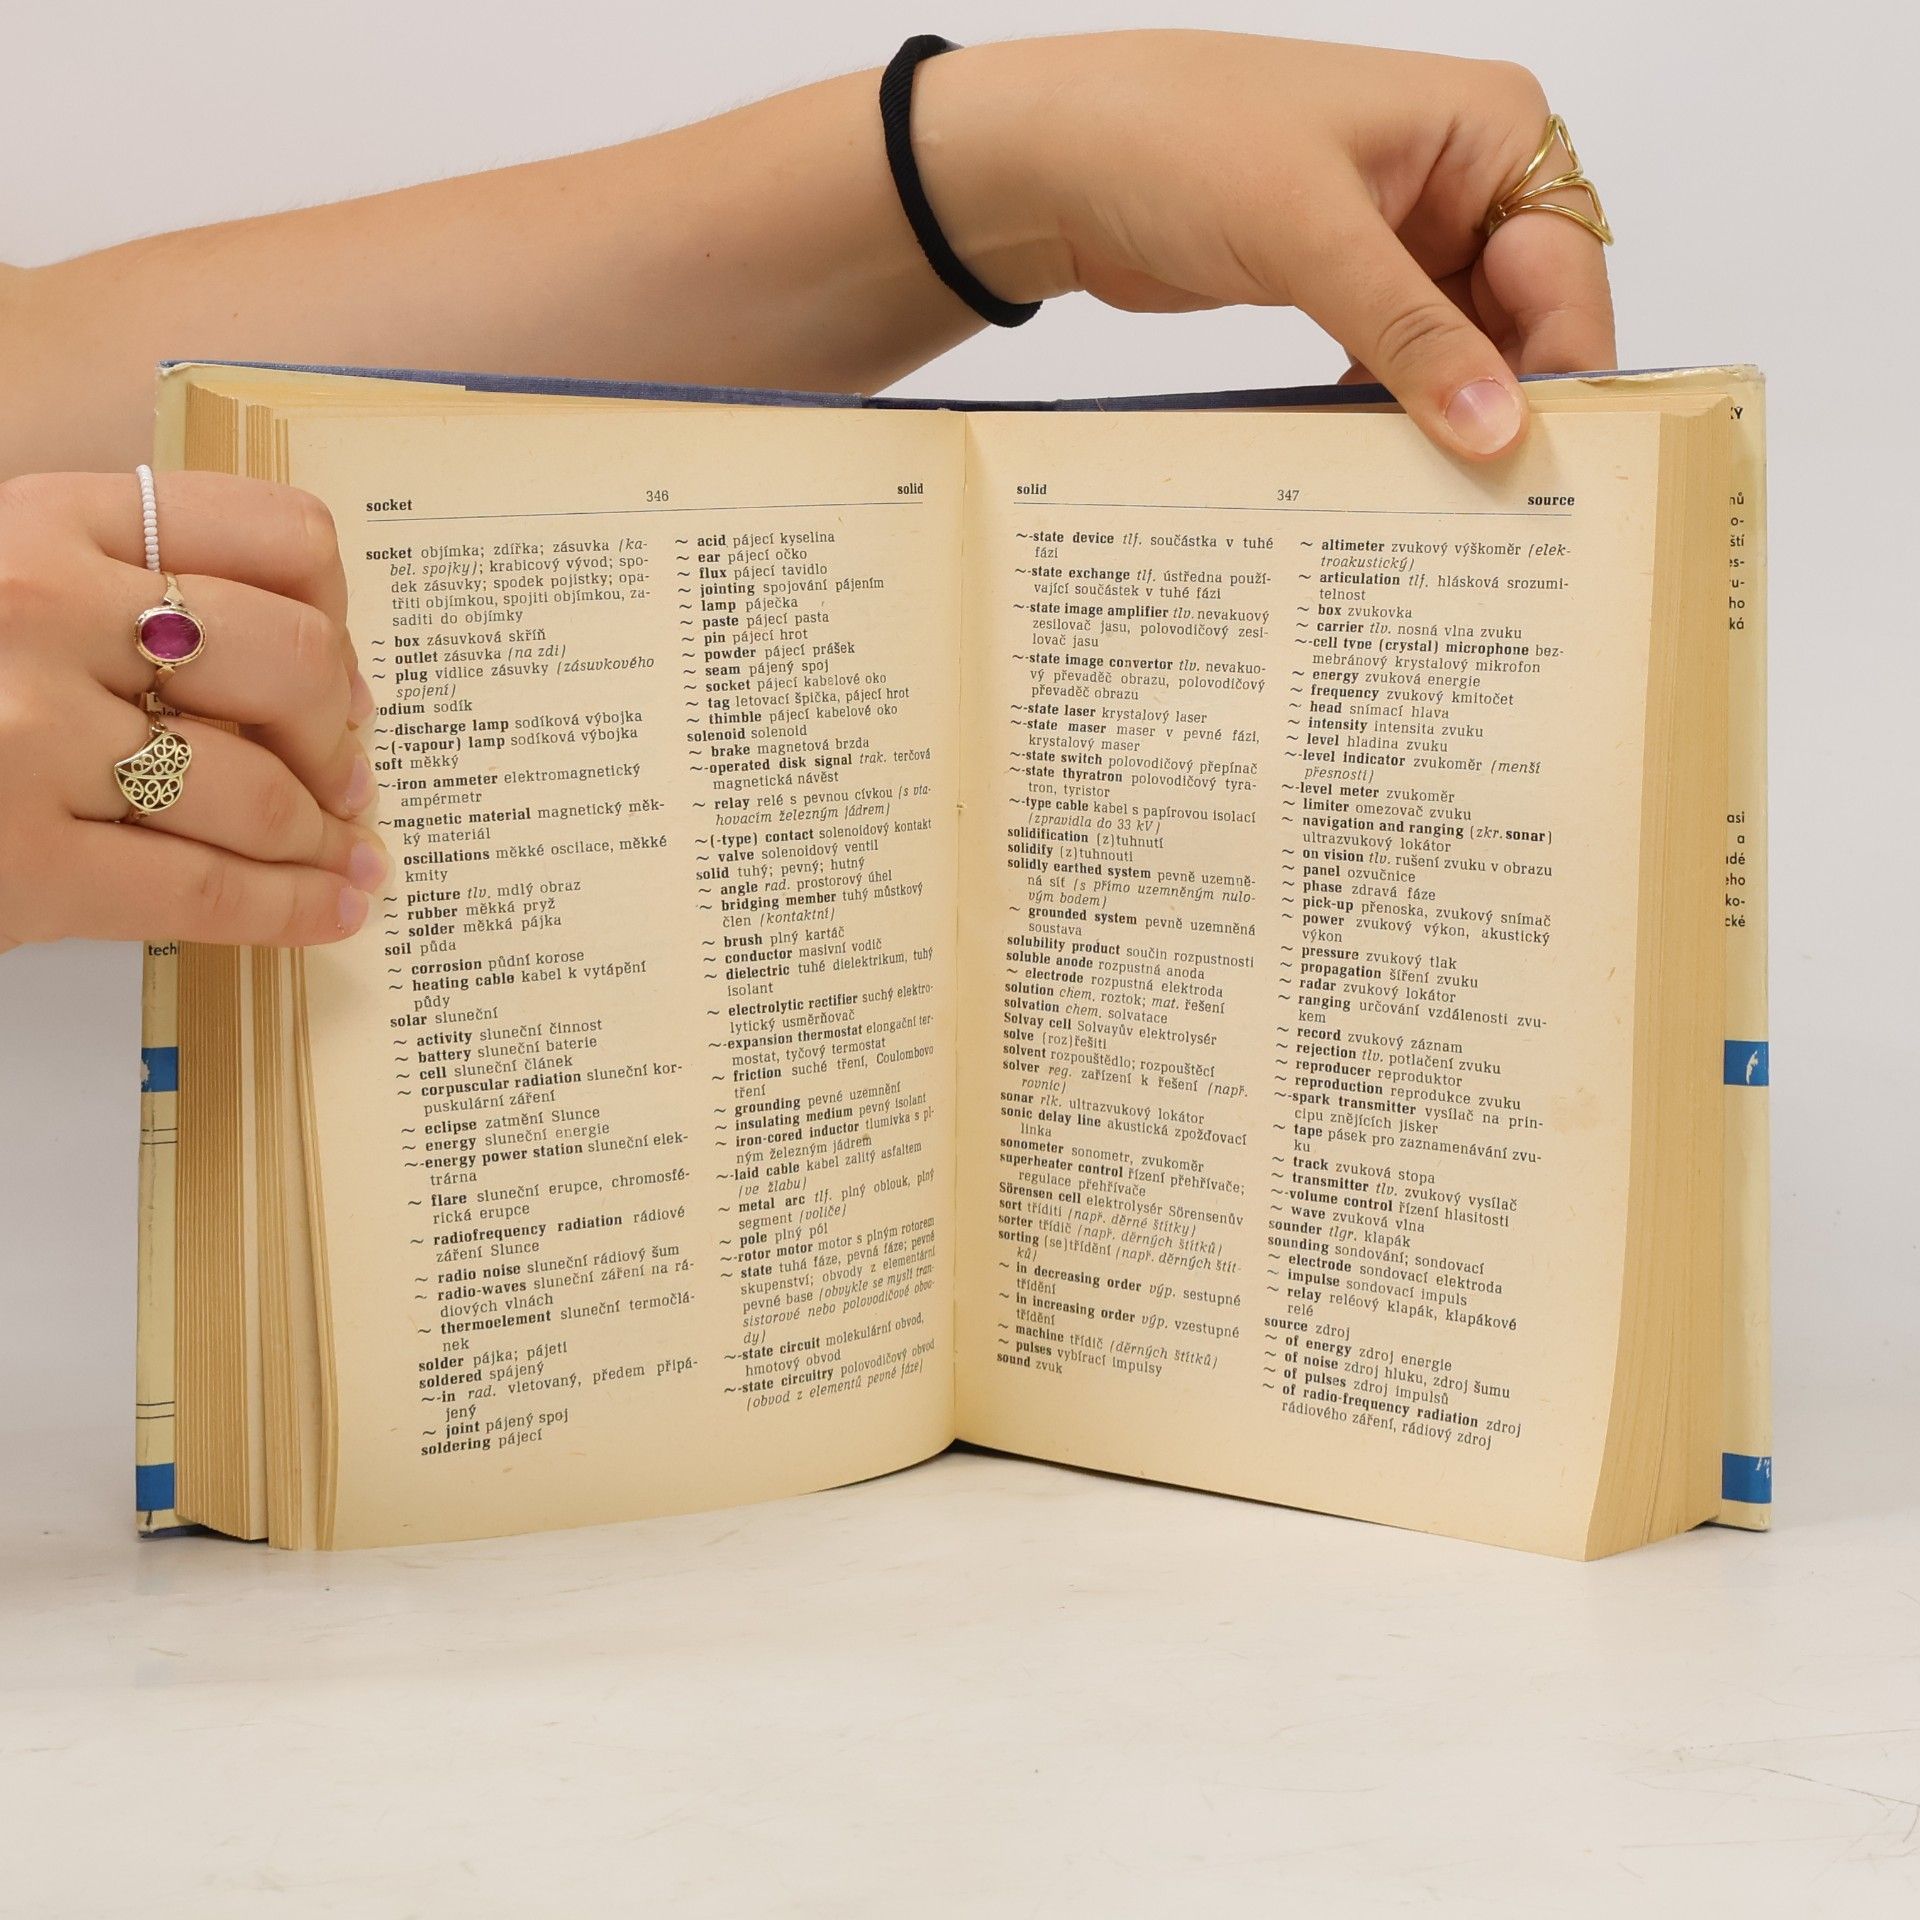 socket
346
solid
socket objímka; zdířka; zásuvka (ka-
bel. spojky); krabicový vývod; spo-
dek zásuvky; spodek pojistky; opa-
třiti objímkou, spojiti objímkou, za-
saditi do objímky
~ box zásuvková skříň
~ outlet zásuvka (na zdi)
~ plug vidlice zásuvky (zásuvkového
spojení)
sodium sodík
~-discharge lamp sodíková výbojka
~(-vapour) lamp sodíková výbojka
soft měkký
~-iron ammeter elektromagnetický
ampérmetr
~magnetic material magnetický měk-
ký materiál
oscillations měkké oscilace, měkké
kmity
~ picture tlv. mdlý obraz
~ rubber měkká pryž
~ solder měkká pájka
soil půda
~ corrosion půdní korose
~ heating cable kabel k vytápění
půdy
solar sluneční
~ activity sluneční činnost
~ battery sluneční baterie
~ cell sluneční článek
~ corpuscular radiation sluneční kor-
puskulární záření
~ eclipse zatmění Slunce
~ energy sluneční energie
~-energy power station sluneční elek-
trárna
~ flare sluneční erupce, chromosfé-
rická erupce
~ radiofrequency radiation rádiové
záření Slunce
~ radio noise sluneční rádiový šum
~ radio-waves sluneční záření na rá-
diových vlnách
~ thermoelement sluneční termočlá-
nek
solder pájka; pájeti
soldered spájený
~-in rad. vletovaný, předem připá-
jený
~ joint pájený spoj
soldering pájecí
~ acid pájecí kyselina
~ ear pájecí očko
~ flux pájecí tavidlo
~ jointing spojování pájením
~ lamp páječka
~ paste pájecí pasta
~ pin pájecí hrot
~ powder pájecí prášek
~ seam pájený spoj
~ socket pájecí kabelové oko
~ tag letovací špička, pájecí hrot
~ thimble pájecí kabelové oko
solenoid solenoid
~ brake magnetová brzda
~-operated disk signal trak. terčová
magnetická návěst
~ relay relé s pevnou cívkou (s vta-
hovacím železným jádrem)
~(-type) contact solenoidový kontakt
~ valve solenoidový ventil
solid tuhý; pevný; hutný
~ angle rad. prostorový úhel
~ bridging member tuhý můstkový
člen (kontaktní)
~ brush plný kartáč
~ conductor masívní vodič
~ dielectric tuhé dielektrikum, tuhý
isolant
~ electrolytic rectifier suchý elektro-
lytický usměrňovač
~-expansion thermostat elongační ter-
mostat, tyčový termostat
~ friction suché tření, Coulombovo
tření
~ grounding pevné uzemnění
~ insulating medium pevný isolant
~ iron-cored inductor tlumivka s pl-
ným železným jádrem
~-laid cable kabel zalitý asfaltem
(ve žlabu)
~ metal arc tlf. plný oblouk, plný
segment (voliče)
~ pole plný pól
~-rotor motor motor s plným rotorem
~ state tuhá fáze, pevná fáze; pevné
skupenství; obvody z elementární
pevné base (obvykle se myslí tran-
sistorové nebo polovodičové obvo-
dy)
~-state circuit molekulární obvod,
hmotový obvod
~-state circuitry polovodičový obvod
(obvod z elementů pevné fáze)
solid
347
source
~-state device tlf. součástka v tuhé
fázi
~-state exchange tlf. ústředna použí-
vající součástek v tuhé fázi
~-state image amplifier tlv. nevakuový
zesilovač jasu, polovodičový zesi-
lovač jasu
~-state image convertor tlv. nevakuo-
vý převaděč obrazu, polovodičový
převaděč obrazu
~-state laser krystalový laser
~-state maser maser v pevné fázi,
krystalový maser
~-state switch polovodičový přepínač
~-state thyratron polovodičový tyra-
tron, tyristor
~-type cable kabel s papírovou isolací
(zpravidla do 33 kV)
solidification (z)tuhnutí
solidify (z)tuhnouti
solidly earthed system pevně uzemně-
ná síť (s přímo uzemněným nulo-
vým bodem)
~ grounded system pevně uzemněná
soustava
solubility product součin rozpustnosti
soluble anode rozpustná anoda
~ electrode rozpustná elektroda
solution chem. roztok; mat. řešení
solvation chem. solvatace
Solvay cell Solvayův elektrolysér
solve (roz)řešiti
solvent rozpouštědlo; rozpouštěcí
solver reg. zařízení k řešení (např.
rovnic)
sonar rlk. ultrazvukový lokátor
sonic delay line akustická zpožďovací
linka
sonometer sonometr, zvukoměr
superheater control řízení přehřívače;
regulace přehřívače
Sörensen cell elektrolysér Sörensenův
sort tříditi (např. děrné štítky)
sorter třídič (např. děrných štítků)
sorting (se)třídění (např. děrných štít-
ků)
~ in decreasing order výp. sestupné
třídění
~ in increasing order výp. vzestupné
třídění
~ machine třídič (děrných štítků)
~ pulses vybírací impulsy
sound zvuk
~ altimeter zvukový výškoměr (elek-
troakustický)
~ articulation tlf. hlásková srozumi-
telnost
~ box zvukovka
~ carrier tlv. nosná vlna zvuku
~-cell type (crystal) microphone bez-
mebránový krystalový mikrofon
~ energy zvuková energie
~ frequency zvukový kmitočet
~ head snímací hlava
~ intensity intensita zvuku
~ level hladina zvuku
~-level indicator zvukoměr (menší
přesnosti)
~-level meter zvukoměr
~ limiter omezovač zvuku
~ navigation and ranging (zkr. sonar)
ultrazvukový lokátor
~ on vision tlv. rušení zvuku v obrazu
~ panel ozvučnice
~ phase zdravá fáze
~ pick-up přenoska, zvukový snímač
~ power zvukový výkon, akustický
výkon
~ pressure zvukový tlak
~ propagation šíření zvuku
~ radar zvukový lokátor
~ ranging určování vzdálenosti zvu-
kem
~ record zvukový záznam
~ rejection tlv. potlačení zvuku
~ reproducer reproduktor
~ reproduction reprodukce zvuku
~-spark transmitter vysílač na prin-
cipu znějících jisker
~ tape pásek pro zaznamenávání zvu-
ku
~ track zvuková stopa
~ transmitter tlv. zvukový vysílač
~-volume control řízení hlasitosti
~ wave zvuková vlna
sounder tlgr. klapák
sounding sondování; sondovací
~ electrode sondovací elektroda
~ impulse sondovací impuls
~ relay reléový klapák, klapákové
relé
source zdroj
~ of energy zdroj energie
~ of noise zdroj hluku, zdroj šumu
~ of pulses zdroj impulsů
~ of radio-frequency radiation zdroj
rádiového záření, rádiový zdroj
tech